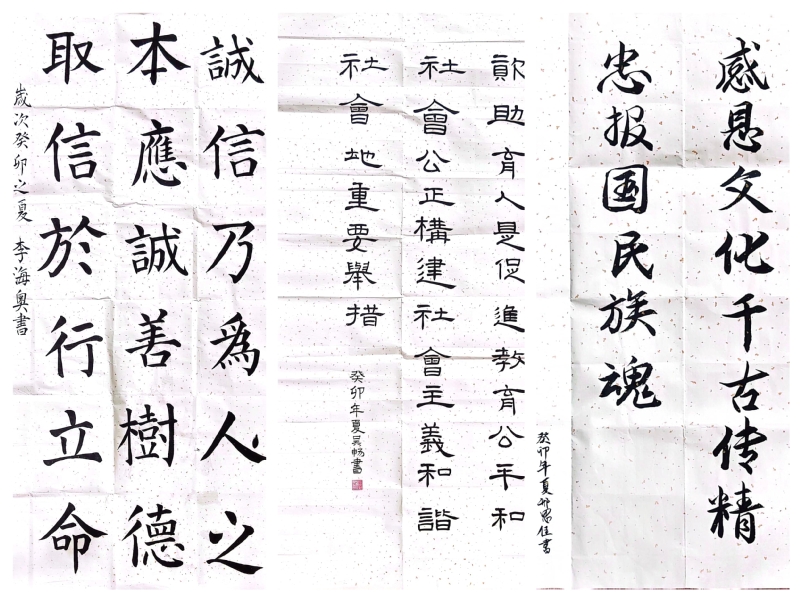 感恩文化千古传精
忠报国民族魂
癸卯年夏佳書
資助育人是促進教育公平和
社會公正構建社會主義和諧
社會地重要舉措
癸卯年夏吴畅書
誠信乃爲人之
本應誠善樹德
取信於行立命
歲次癸卯之夏 李海奥書